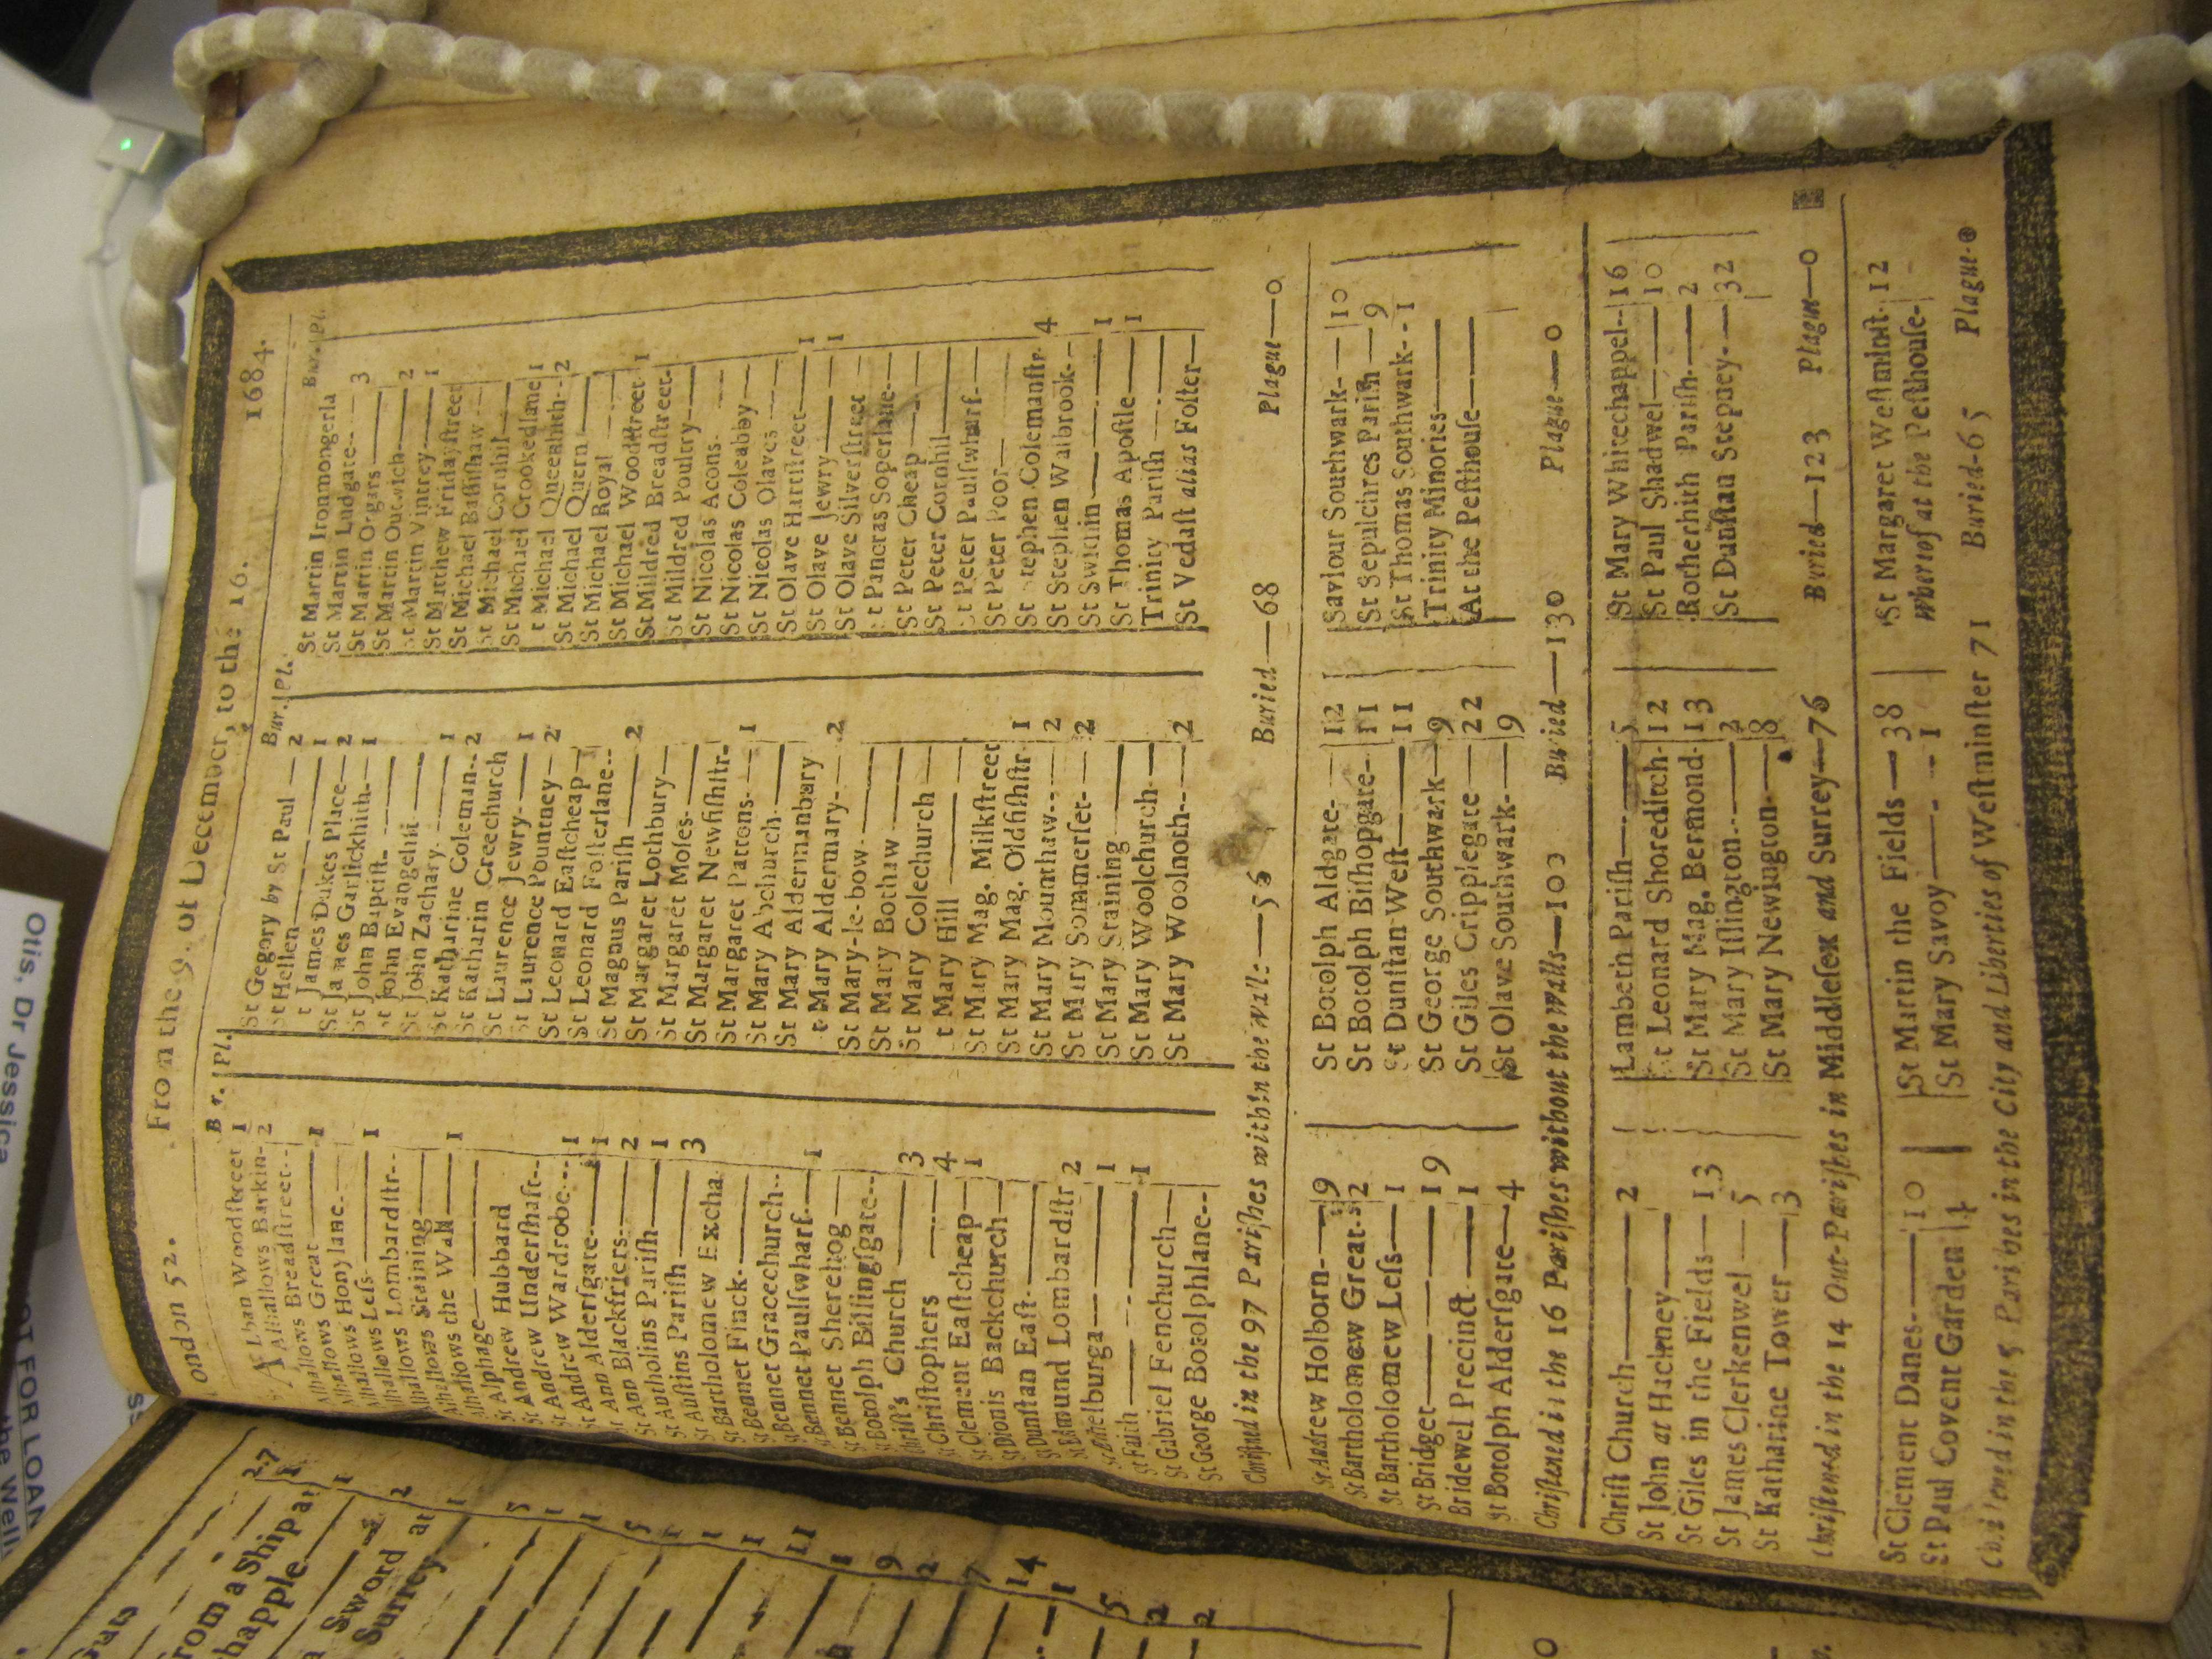 London 52. From the 9. of December, to the 16. 1684.
Bur. Pl.
St Alban Woodstreet 1
Alhallows Barkin- 2
Alhallows Breadstreet--
Alhallows Great 1
Alhallows Honylane-
Alhallows Less 1
Alhallows Lombardstr--
Alhallows Staining
Alhallows the Wall 1
Alphage
St Andrew Hubbard
St Andrew Undershaft--
St Andrew Wardrobe--- 1
St Ann Aldersgate 1
St Ann Blackfriers 2
St Antholins Parish 1
St Austins Parish 3
St Bartholomew Excha.
St Bennet Finck
St Bennet Gracechurch--
St Bennet Paulswharf 1
St Bennet Sherehog
St Botolph Billingsgate--
Christ's Church 3
St Christophers 4
St Clement Eastcheap 1
St Dionis Backchurch
St Dunstan East
St Edmund Lombardstr 2
St Ethelburga 1
St Faith 1
St Gabriel Fenchurch
St George Botolphlane--
Bur. Pl.
St Gregory by St Paul 2
St Hellen 1
St James Dukes Place 2
St James Garlickhith 1
St John Baptist
St John Evangelist
St John Zachary 1
St Katharine Coleman-- 2
St Katharin Creechurch
St Laurence Jewry 1
St Laurence Pountney 2
St Leonard Eastcheap
St Leonard Fosterlane--
St Magnus Parish 2
St Margaret Lothbury
St Margaret Moses
St Margaret Newfishstr-
St Margaret Pattons 1
St Mary Abchurch
St Mary Aldermanbury
St Mary Aldermary 2
St Mary-le-bow
St Mary Bothaw
St Mary Colechurch
St Mary Hill
St Mary Mag. Milkstreet
St Mary Mag. Oldfishstr 1
St Mary Mounthaw 2
St Mary Sommerset 2
St Mary Staining
St Mary Woolchurch
St Mary Woolnoth 2
Bur. Pl.
St Martin Ironmongerla
St Martin Ludgate 3
St Martin Orgars
St Martin Outwich 2
St Martin Vintrey 1
St Matthew Fridaystreet
St Michael Bassishaw
St Michael Cornhil
St Michael Crookedlane 1
St Michael Queenhith 2
St Michael Quern
St Michael Royal
St Michael Woodstreet 1
St Mildred Breadstreet-
St Mildred Poultry
St Nicolas Acons
St Nicolas Coleabby
St Nicolas Olaves
St Olave Hartstreet 1
St Olave Jewry 1
St Olave Silverstreet
St Pancras Soperlane
St Peter Cheap
St Peter Cornhil
St Peter Paulswharf
St Peter Poor
St Stephen Colemanstr 4
St Stephen Walbrook
St Swithin 1
St Thomas Apostle 1
Trinity Parish
St Vedast alias Foster
Christned in the 97 Parishes within the Walls—56 Buried—68 Plague—0
St Andrew Holborn 19
St Bartholomew Great 2
St Bartholomew Less 1
St Bridget 19
Bridewel Precinct 1
St Botolph Aldersgate 4
St Botolph Aldgate 12
St Botolph Bishopgate 11
St Dunstan West 11
St George Southwark 9
St Giles Cripplegate 22
St Olave Southwark 9
Saviour Southwark 10
St Sepulchres Parish 9
St Thomas Southwark 1
Trinity Minories
At the Pesthouse
Christened in the 16 Parishes without the walls—103 Buried—130 Plague—0
Christ Church 2
St John at Hackney
St Giles in the Fields 13
St James Clerkenwel 5
St Katharine Tower 3
Lambeth Parish 5
St Leonard Shoreditch 12
St Mary Mag. Bermond 13
St Mary Islington 2
St Mary Newington 8
St Mary Whitechappel 16
St Paul Shadwel 10
Rotherhith Parish 2
St Dunstan Stepney 32
Christened in the 14 Out-Parishes in Middlesex and Surrey—76 Buried—123 Plague—0
St Clement Danes 10
St Paul Covent Garden
St Martin the Fields 38
St Mary Savoy 1
St Margaret Westminst. 12
Whereof at the Pesthouse
Christened in the 5 Parishes in the City and Liberties of Westminster 71 Buried-65 Plague-0
from a Ship at
Sword at
Surrey
Otis, Dr Jessica
NOT FOR LOAN